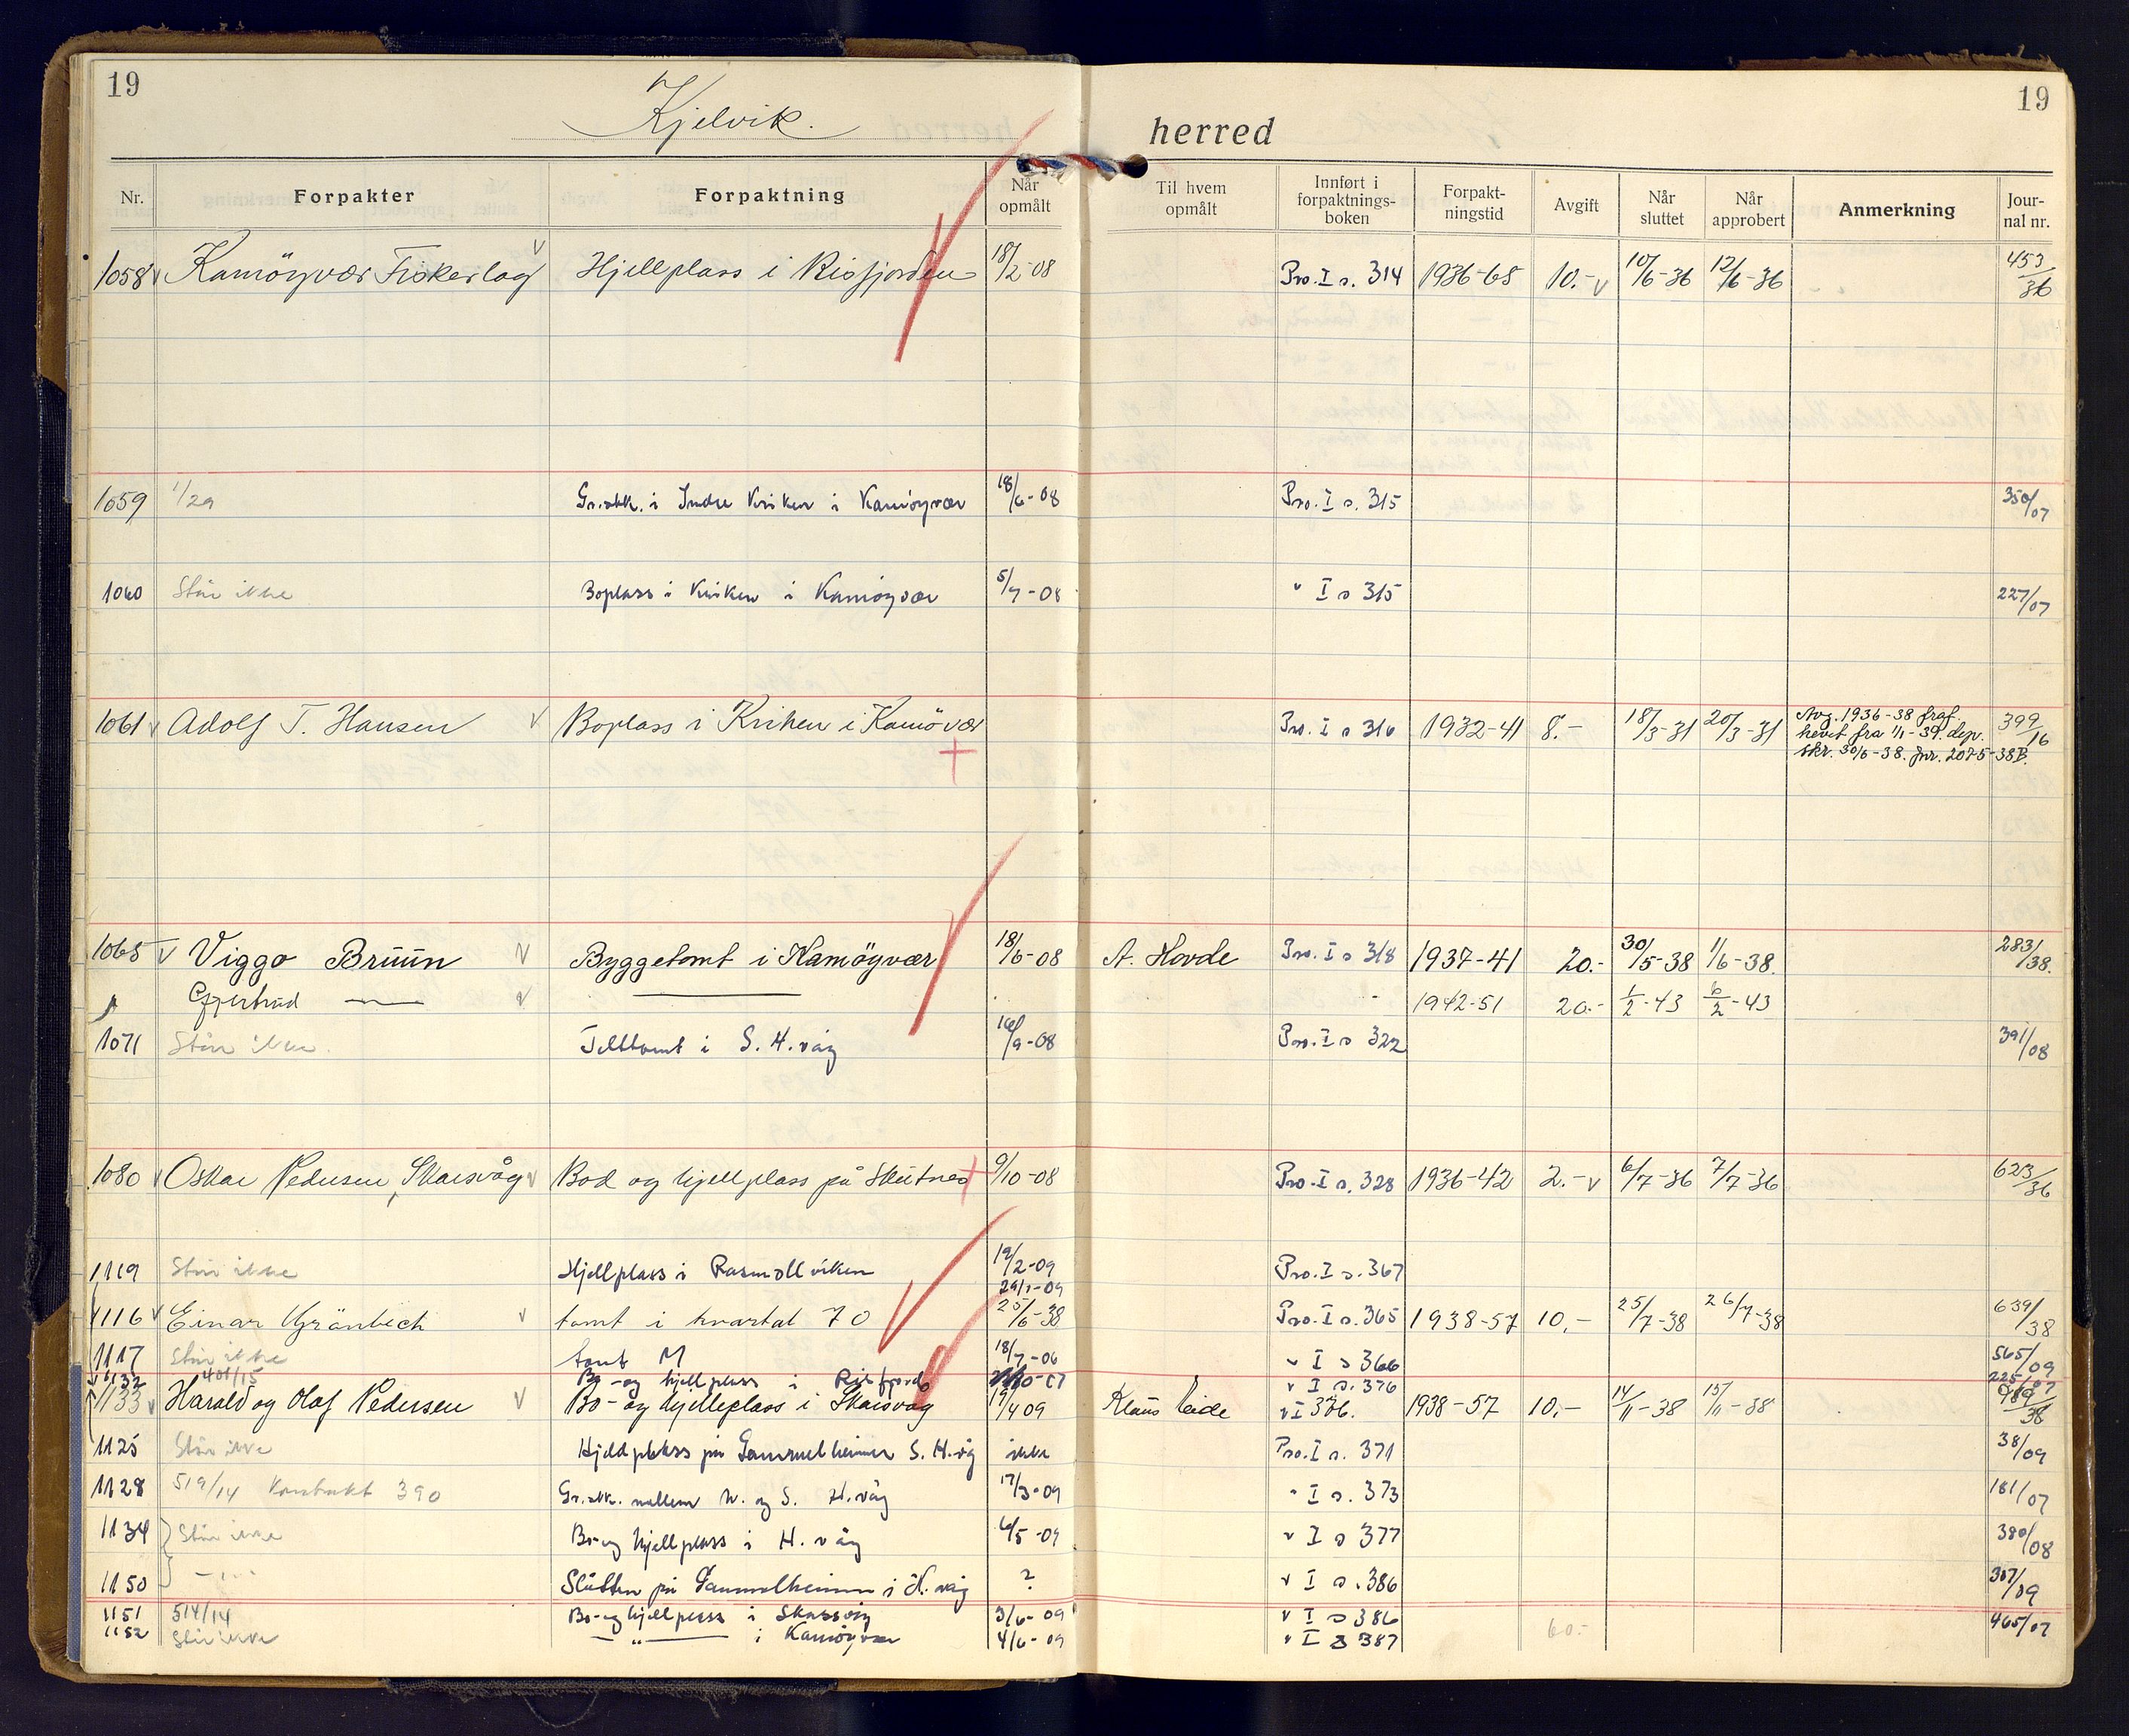 19
19
Kjelvik. herred
Nr. Forpakter Forpaktning Når opmålt Til hvem opmålt Innført i forpaktnings-boken Forpakt-ningstid Avgift Når sluttet Når approbert Anmerkning Jour-nal nr.
1058 v Kamöyvær Fiskerlag v Hjellplass i Risfjorden 18/2-08 Pro. I s. 314 1936-65 10.- v 10/6-36 12/6-36 453/36
1059 1/29 Gr.stk. i Indre Kriken i Kamöyvær 18/6-08 Pro. I s. 315 350/07
1060 Står ikke Boplass i Kriken i Kamöyvær 5/7-08 " I s 315 227/07
1061 v Adolf T. Hansen v Boplass i Kriken i Kamövær Pro. I s 316 1932-41 8.- 18/3-31 20/3-31 Avg. 1936-38 fraf. 399/16
hevet fra 1/1-39. dep.
skr. 30/6-38. jnr. 2075-38B.
1065 v Viggo Bruun v Byggetomt i Kamöyvær 18/6-08 A. Hovde Pro. I s 318 1937-41 20.- 30/5-38 1/6-38. 283/38.
Gjertrud — v — 1942-51 20.- 1/2-43 6/2-43
1071 Står ikke. Telttomt i S. H.våg 16/9-08 Pro. I s 322 391/08
1080 v Oskar Pedersen, Skarsvåg v Bod og hjellplass på Skutnes 9/10-08 Pro. I s. 328 1936-42 2.- v 6/7-36 7/7-36 623/36
1119 Står ikke Hjellplass i Rasmollviken 19/2-09 Pro. I s. 367
29/1-09
1116 v Einar Grönbech v tomt i kvartal 70 25/6-38 Pro. I s. 365 1938-57 10,- 25/7-38 26/7-38 639/38
1117 Står ikke tomt M 18/7-06 " I s 366 565/09
1132 401/15 Bo- og hjellplass i Risfjord " I s. 376 225/07
1133 v Harald og Olaf Pedersen v Bo- og hjelleplass i Skarsvåg 19/4 09 Klaus Eide " I 376. 1938-57 10.- 14/11-38 15/11-38 989/38
1125 Står ikke Hjellplass på Gammelheimen S. H.våg ikke Pro. I s. 371 38/09
1128 519/14 Kontrakt 390 Gr.stk. mellem N. og S. H.våg 17/3-09 " I s. 373 181/07
1134 Står ikke Bo- og hjellplass i H. våg 6/5-09 " I s 377 380/08
1150 — " — Slåtten på Gammelheimen i H. våg ? " I s. 386 307/09
1151 514/14 Bo- og hjellplass i Skarsvåg 3/6-09 " I s 386 465/07
1152 Står ikke — " — i Kamöyvær 4/6-09 " I s 387 60.-